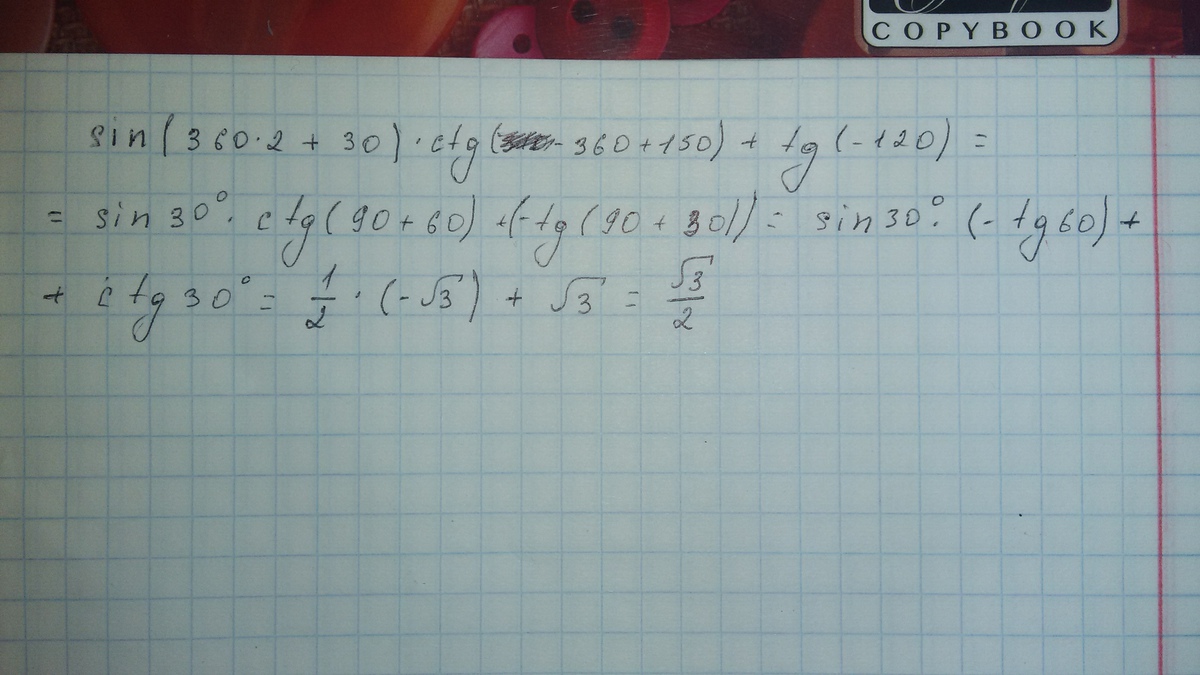 COPYBOOK
sin(360·2 + 30)·ctg(-360+150) + tg(-120) =
= sin30°· ctg(90+60) +(-tg(90+30)) = sin30°· (-tg60) +
+ ctg30° = 1/2 · (-√3) + √3 = √3/2